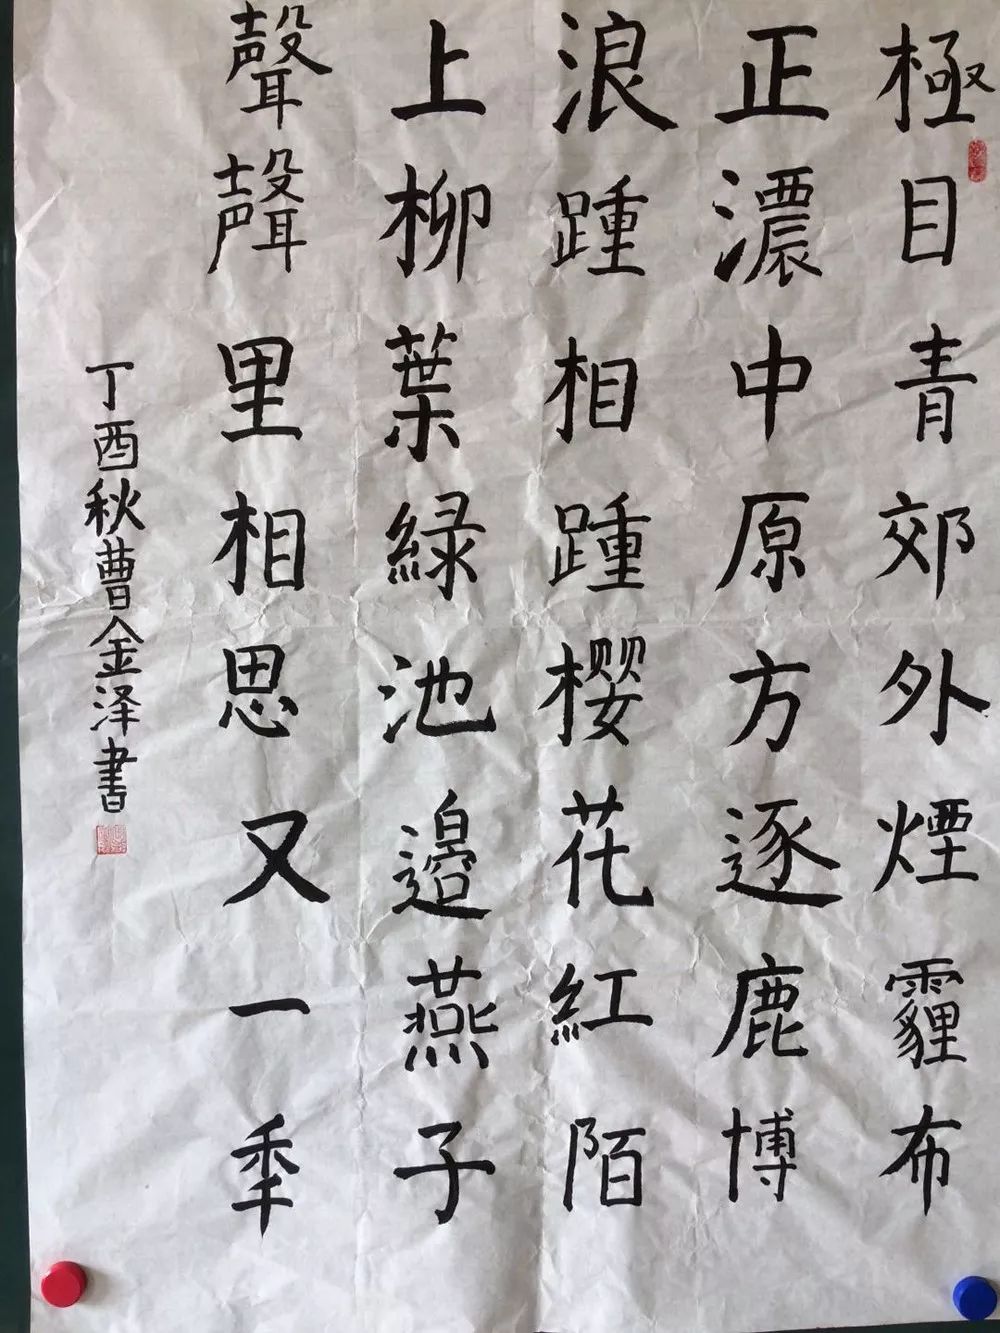 極目青郊外煙霾布
正濃中原方逐鹿博
浪踵相踵樱花紅陌
上柳葉緑池邊燕子
聲聲里相思又一秊
丁酉秋曹金泽書